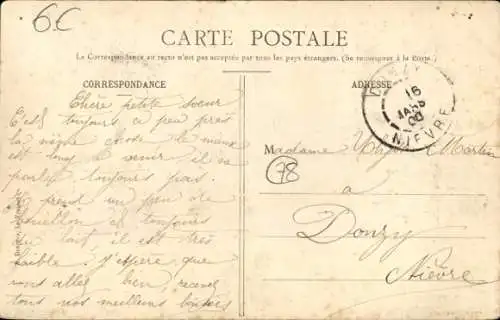 6C
CARTE POSTALE
La Correspondance au recto n'est pas acceptée par tous les pays étrangers. (Se renseigner à la Poste)
CORRESPONDANCE
ADRESSE
DONZY
16
NIÈVRE
Chère petite soeur
C'est toujours à peu près
la même chose le mieux
est long à venir il ne
parle toujours pas.
Je prend un peu de
bouillon et toujours
du lait, il est très
faible. j'espère que
vous allez bien, recevez
tous nos meilleurs baisers
Madame Martin
78
à
Donzy
Nièvre